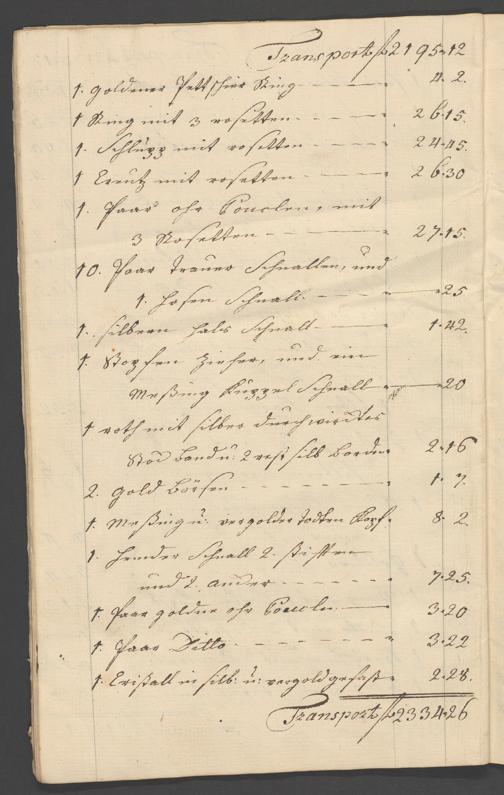 Transport f 2195.12
1. goldener Pettschier Ring - - - 4. 2.
1 Ring mit 3 rosetten - - - 26.15.
1. Schlupp mit rosetten - - - 24.45.
1 Creutz mit rosetten - - - 26.30
1. Paar ohr Bouclen, mit
3 Rosetten - - - 27.15.
10. Paar Trauer Schnallen, und
1. Hosen Schnall. - - - 25
1. silbern Hals Schnall - - - 1.42.
1. Stopfen zieher, und ein
Meßing Kuppel Schnall - 20
1 roth mit silber durchwirctes
Stoc band u: 2 rest silb borden 2.16
2. gold Börsen - - - 1. 7.
1. Meßing u: vergolder todten Kopf. 8. 2.
1. Hemder Schnall 2. stifften
und 2. - - - 7.25.
1. Paar goldne ohr Bouclen 3.20
1. Paar Ditto - - - 3.22
1. Cristall in silb: u: vergold gefast 2.28.
Transport f 2334.26